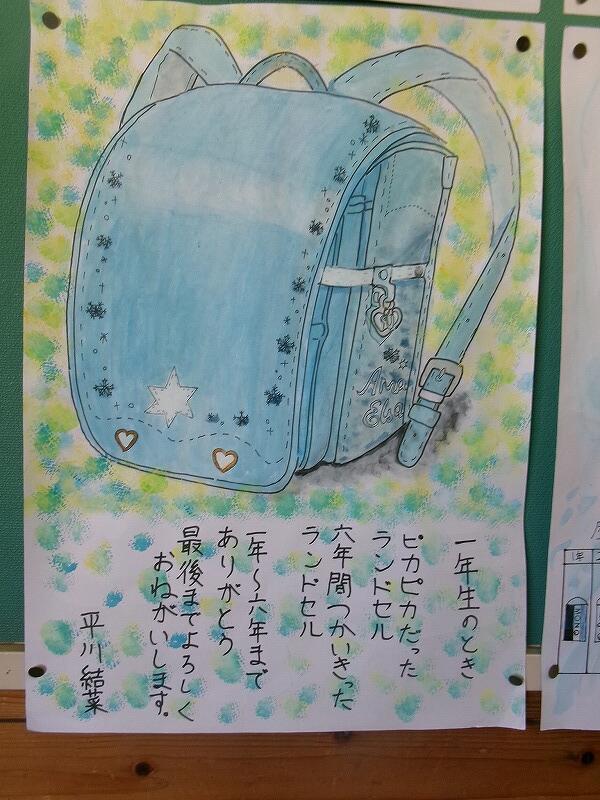 一年生のとき
ピカピカだった
ランドセル
六年間つかいきった
ランドセル
一年〜六年まで
ありがとう
最後までよろしく
おねがいします。
平川 結菜
Anna
Elsa
1年
MONO